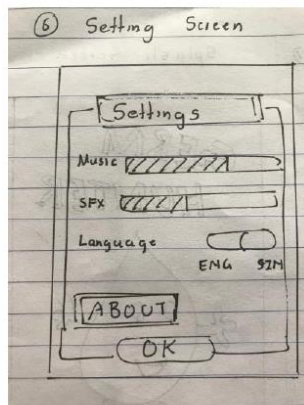 6 Setting Screen
Settings
Music
SFX
Language
ENG SIN
ABOUT
OK